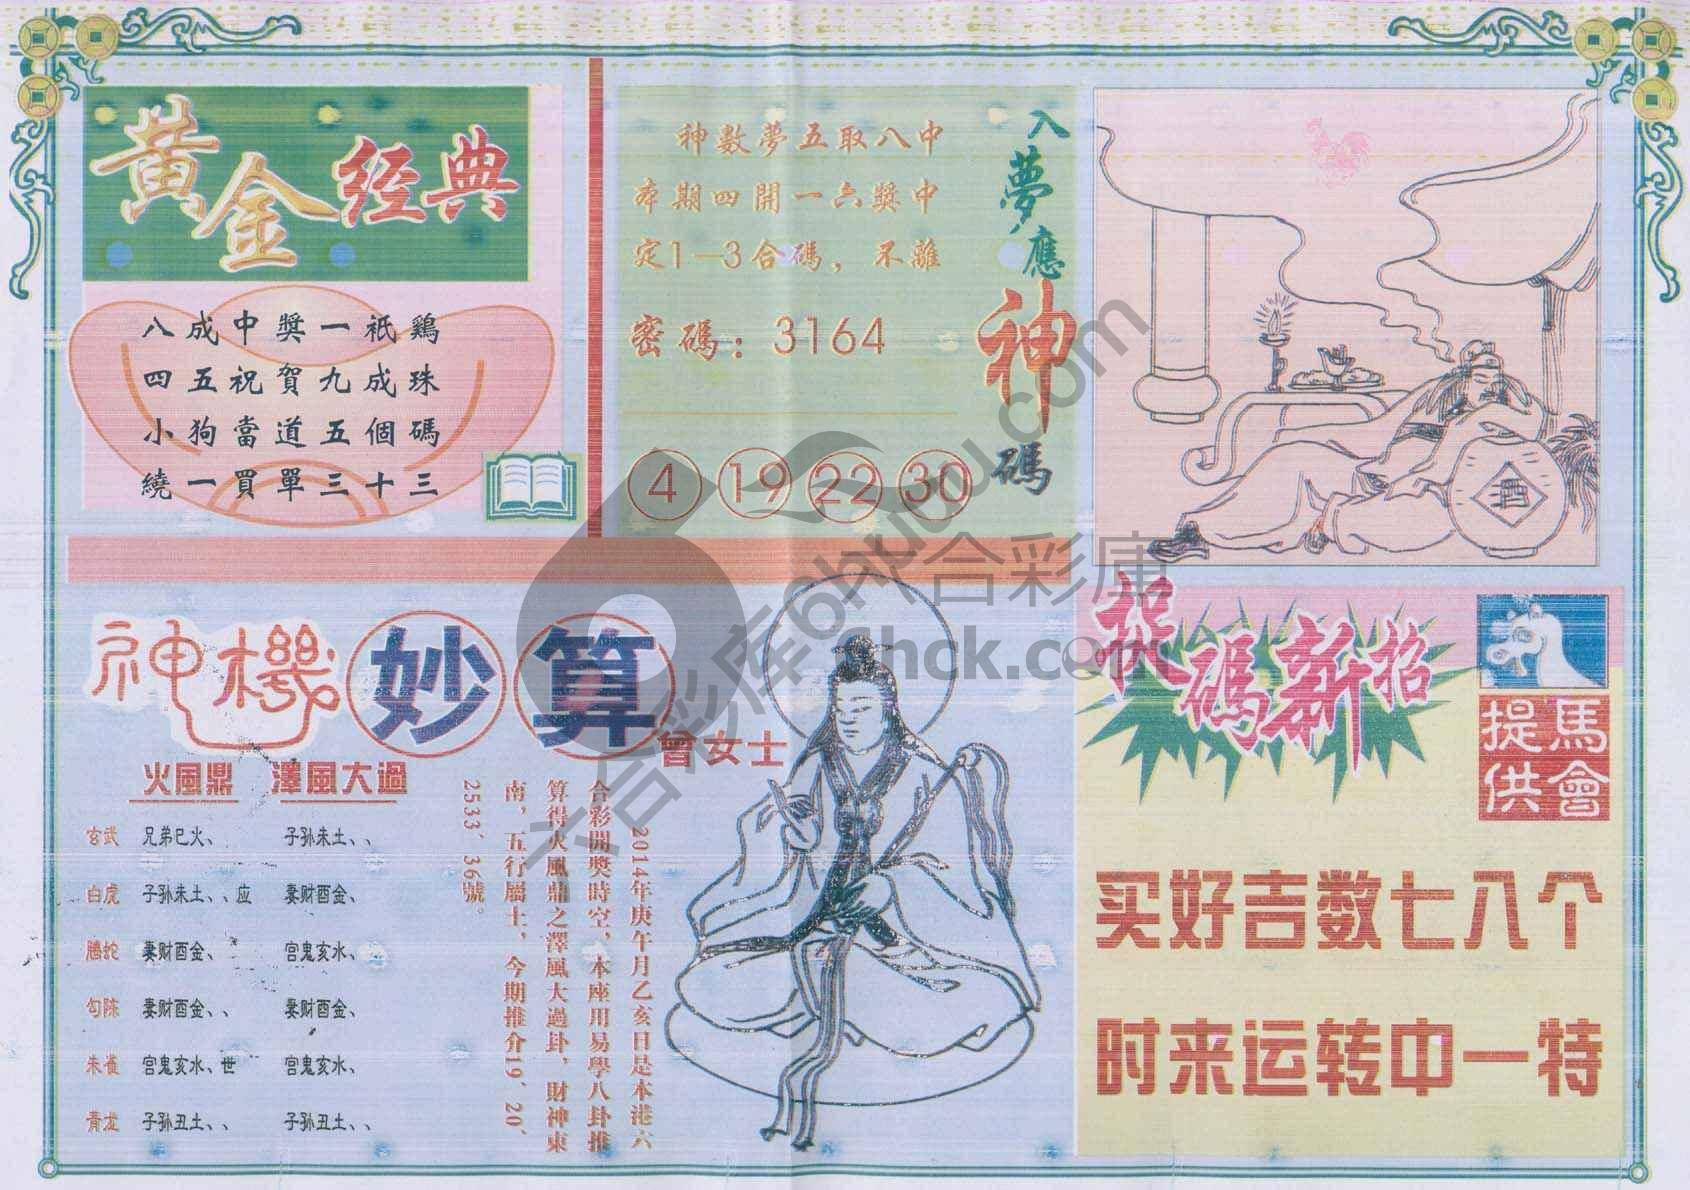 黄金经典
八成中獎一祇鷄
四五祝賀九成珠
小狗當道五個碼
繞一買單三十三
入夢應神碼
神數夢五取八中
本期四開一六獎中
定1—3合碼，不離
密碼：3164
4 19 22 30
酒
神機妙算
曾女士
火風鼎 澤風大過
玄武 兄弟巳火、 子孙未土、、
白虎 子孙未土、、应 妻财酉金、
腾蛇 妻财酉金、 官鬼亥水、
勾陈 妻财酉金、、 妻财酉金、
朱雀 官鬼亥水、世 官鬼亥水、
青龙 子孙丑土、、 子孙丑土、、
2014年庚午月乙亥日是本港六
合彩開獎時空，本座用易學八卦推
算得火風鼎之澤風大過卦，財神東
南，五行屬土，今期推介19、20、
2533、36號。
捉碼新招
馬會
提供
买好吉数七八个
时来运转中一特
六合彩库6hpupu.com
六合彩庫
6hck.com